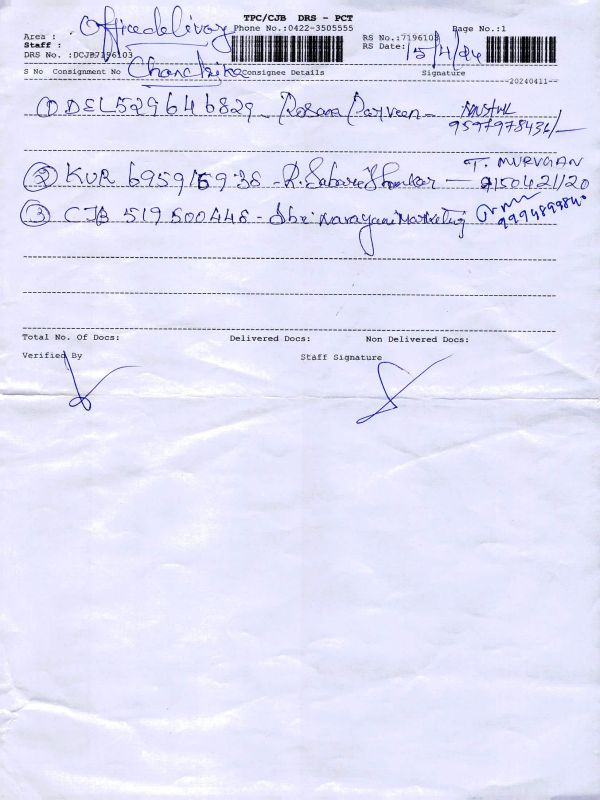 TPC/CJB DRS - PCT
Area : Office delivery Phone No.:0422-3505555 RS No.:7196103 Page No.:1
Staff : RS Date: 15/4/24
DRS No. :DCJB7196103
S No Consignment No Chandrika Consignee Details Signature
20240411
① DEL529646829 - Rosana Parveen -
② KUR 695915938 - R. Sabareshankar - T. MURUGAN
9150421120
③ CJB 519500448 - Sbri Narayani Marketing 9994899840
Total No. Of Docs: Delivered Docs: Non Delivered Docs:
Verified By Staff Signature